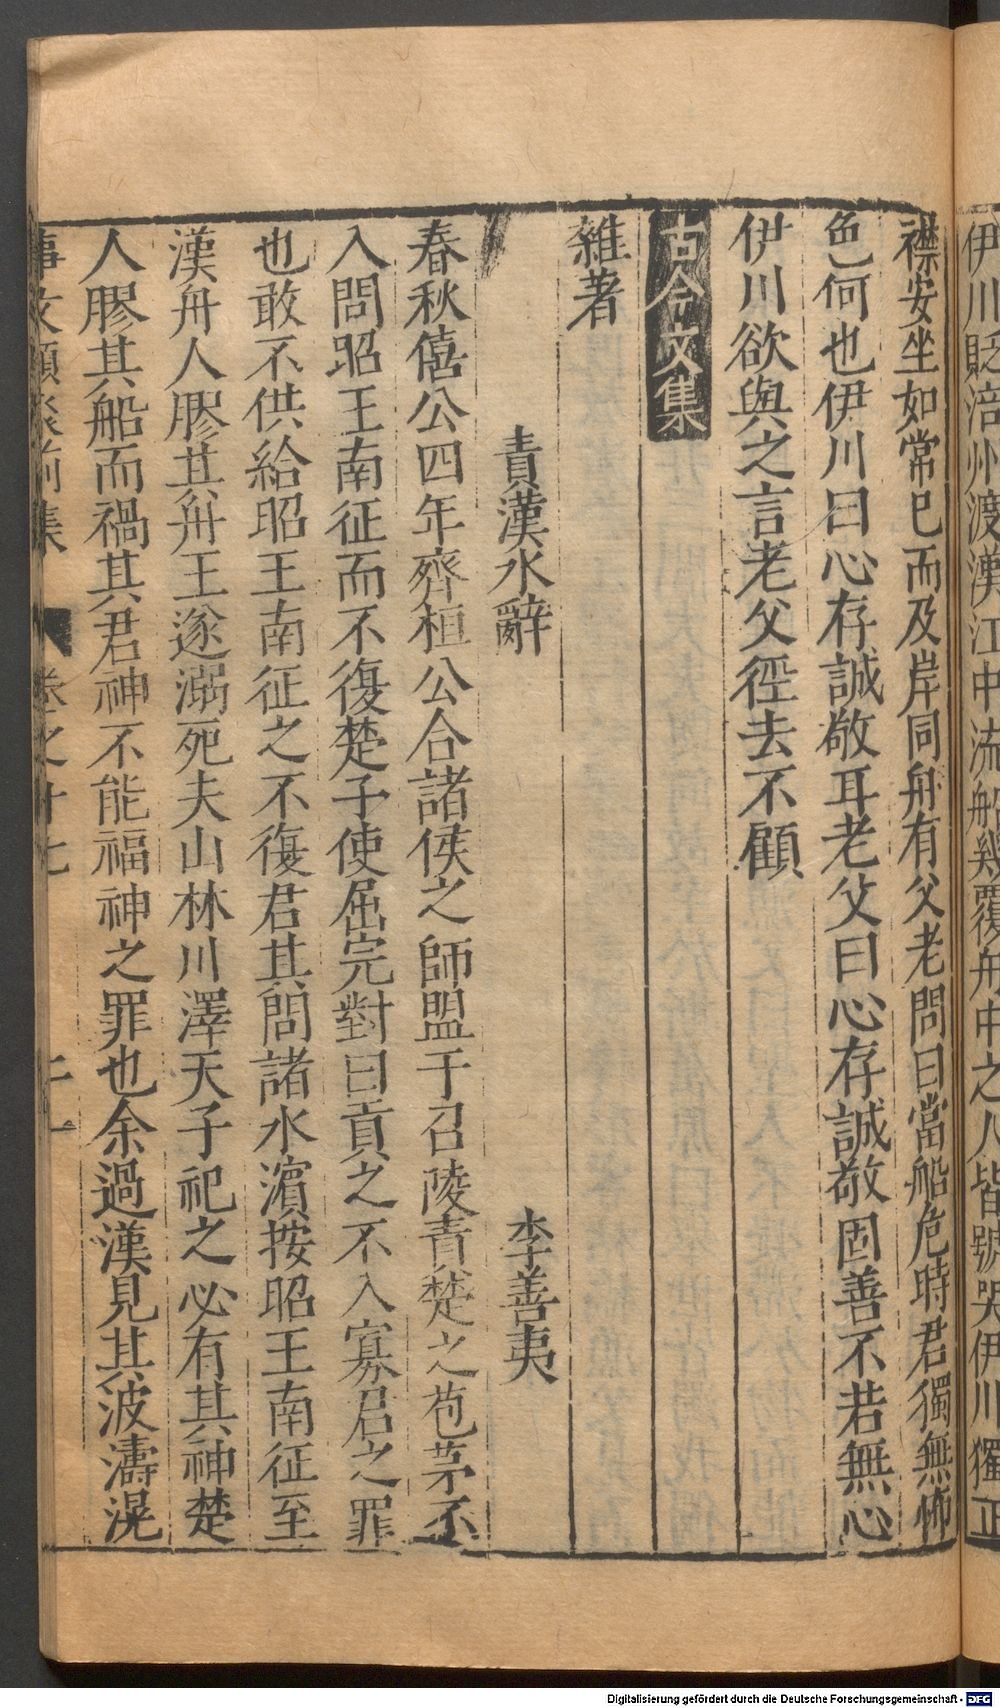 伊川貶涪州渡漢江中流船幾覆舟中之人皆號哭伊川獨正
襟安坐如常已而及岸同舟有父老問曰當船危時君獨無怖
色何也伊川曰心存誠敬耳老父曰心存誠敬固善不若無心
伊川欲與之言老父徑去不顧
古今文集
雜著
責漢水辭 李善夷
春秋僖公四年齊桓公合諸侯之師盟于召陵責楚之苞茅不
入問昭王南征而不復楚子使屈完對曰貢之不入寡君之罪
也敢不供給昭王南征之不復君其問諸水濱按昭王南征至
漢舟人膠其舟王遂溺死夫山林川澤天子祀之必有其神楚
人膠其船而禍其君神不能福神之罪也余過漢見其波濤滉
事文類聚前集 卷之十七
Digitalisierung gefördert durch die Deutsche Forschungsgemeinschaft - DFG